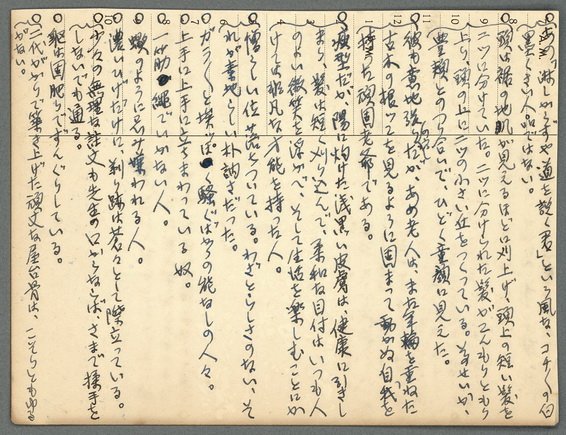 ○あの「淋しからずや道を説く君」という風な、コチコチの白
墨くさい人品ではない。
○頭は裾の地肌が見えるほどに刈上げ、頭上の短い髪を
二ツに分けていた。二ツに分けられた髪がこんもりともり
上り、頭の上に二ツの小さい丘をつくっている。なぜいが、
豊頬とのつり合いで、ひどく童顔に見えた。
○彼も意地張りだが、ああ老人は、また年輪を重ねた
古木の根ッコを見るように固まって動かぬ自我を
持った頑固老爺である。
○痩型だが、陽に灼けた浅黒い皮膚は、健康に引きし
まり、髪は短く刈り込んで、柔和な目付はいつも人
のよい微笑を浮かべ、そして生活を楽しむことにか
けては非凡な才能を持った人。
○憎らしい位落ちついている。わざとらしさのない、そ
れが意地らしい朴訥さだった。
○ガラガラと埃っぽく騒ぐばかりの能なしの人々。
○上手に上手に立ちまわっている奴。
○一筋縄でいかない人。
○蝮のように忌み嫌われる人。
○濃いひげだけに、剃り跡は蒼々として際立っている。
○少々の無理な註文も先生の口からならば、さまで揉手を
しないでも通る。
○躯は固肥りでずんぐりしている。
○二代がかりで築き上げた頑丈な屋台骨は、こそりともゆる
がない。